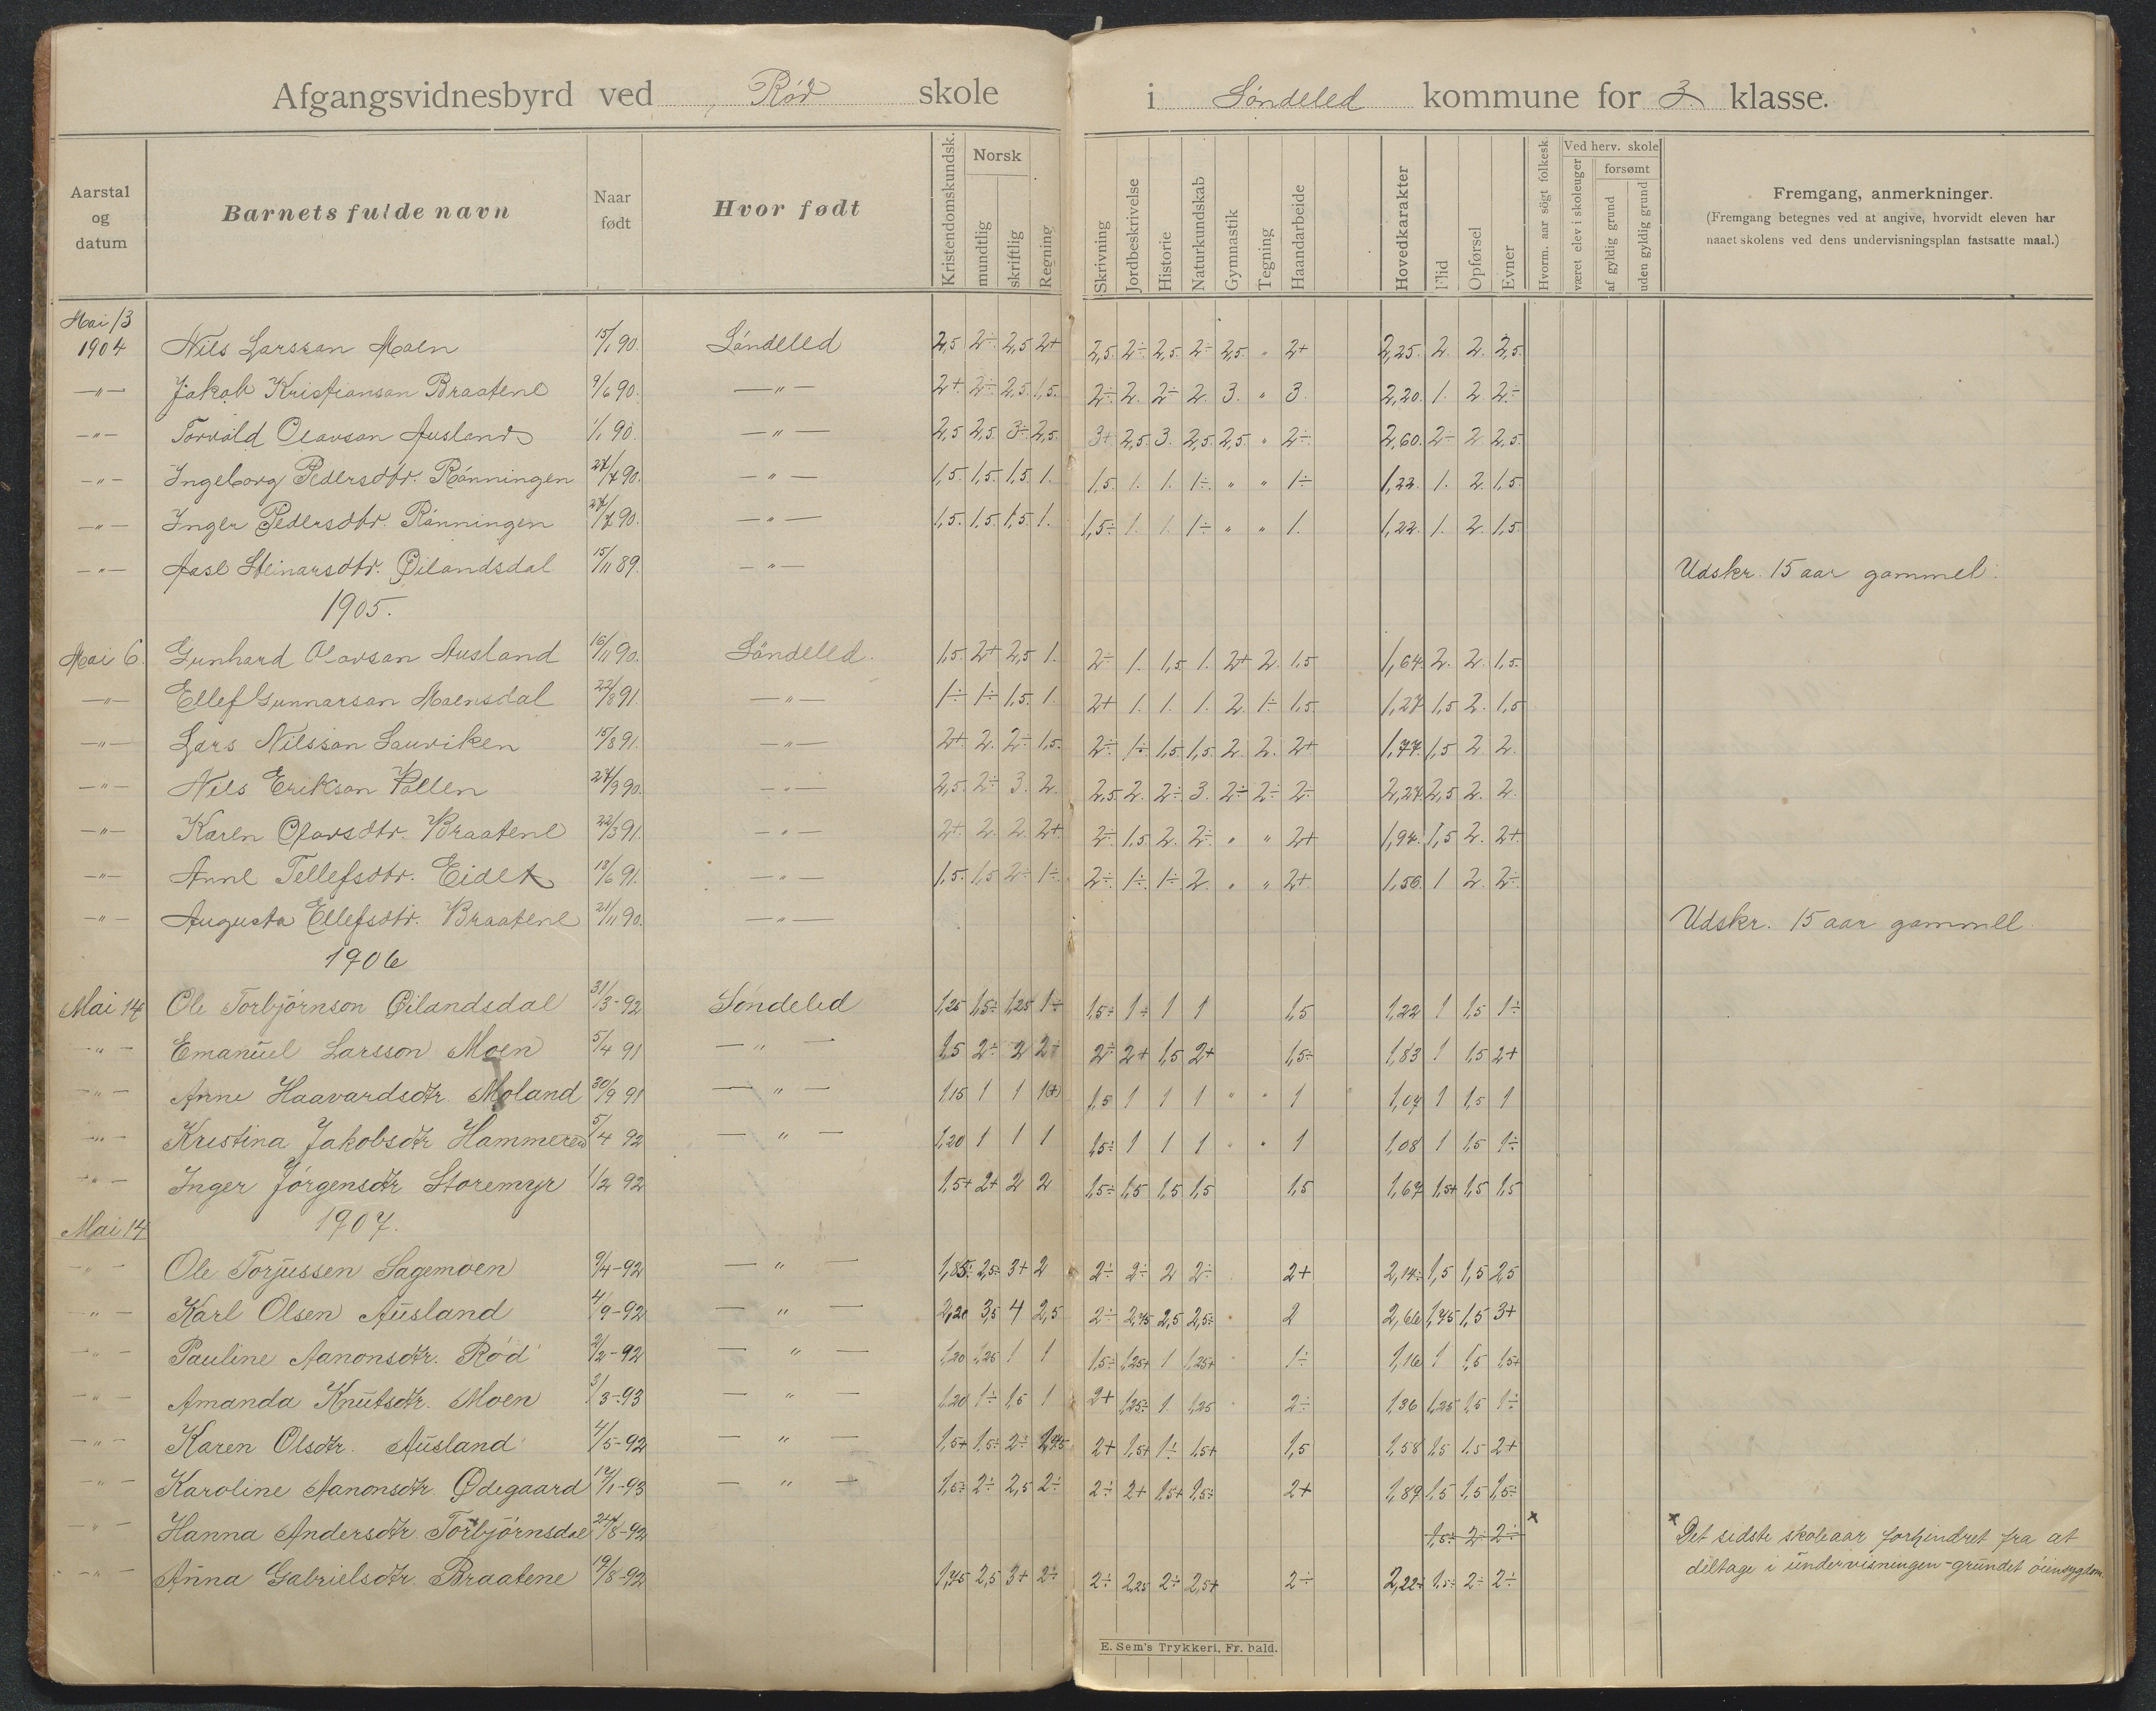 Afgangsvidnesbyrd ved Rød skole i Söndeled kommune for 3. klasse.
Aarstal og datum | Barnets fulde navn | Naar født | Hvor født | Kristendomskundsk. | Norsk mundtlig | skriftlig | Regning | Skrivning | Jordbeskrivelse | Historie | Naturkundskab | Gymnastik | Tegning | Haandarbeide | Hovedkarakter | Flid | Opførsel | Evner | Hvorm. aar sögt folkesk. | Ved herv. skole været elev i skoleuger | forsømt af gyldig grund | uden gyldig grund | Fremgang, anmerkninger.
(Fremgang betegnes ved at angive, hvorvidt eleven har
naaet skolens ved dens undervisningsplan fastsatte maal.)
Mai 13
1904 Nils Larssøn Moen 15/1 90. Söndeled 2,5 2÷ 2,5 2+ 2,5. 2÷ 2,5. 2÷ 2,5. " 2+ 2,25. 2. 2. 2,5.
—"— Jakob Kristiansøn Braatene 9/6 90. —"— 2+ 2÷ 2,5. 1,5. 2÷ 2. 2÷ 2. 3. " 3. 2,20. 1. 2 2÷
—"— Torvald Olavsøn Ausland 1/1 90. —"— 2,5 2,5. 3÷ 2,5. 3+ 2,5. 3. 2,5. 2,5. " 2÷ 2,60. 2÷ 2 2,5.
—"— Ingeborg Pedersdtr. Rönningen 27/7 90. —"— 1,5. 1,5. 1,5. 1. 1,5. 1. 1. 1÷ " " 1÷ 1,22. 1. 2. 1,5.
—"— Inger Pedersdtr. Rönningen 27/7 90. —"— 1,5. 1,5. 1,5. 1. 1,5÷ 1. 1. 1÷ " " 1. 1,22. 1. 2 1,5.
—"— Aase Steinarsdtr. Øilandsdal 15/11 89. —"— Udskr. 15 aar gammel.
1905.
Mai 6. Gunhard Olavsøn Ausland 16/11 90. Söndeled. 1,5. 2+ 2,5 1. 2÷ 1. 1,5 1. 2+ 2. 1,5 1,64. 2. 2. 1,5.
—"— Ellef Gunnarsøn Moensdal 22/8 91. —"— 1÷ 1÷ 1,5. 1. 2+ 1. 1. 1. 2. 1÷ 1,5 1,27. 1,5 2. 1,5
—"— Lars Nilssøn Lauviken 15/8 91. —"— 2+ 2. 2÷ 1,5. 2÷ 1÷ 1,5 1,5 2. 2. 2+ 1,77. 1,5 2 2.
—"— Nils Eriksøn Vollen 27/9 90. —"— 2,5. 2÷ 3. 2. 2,5 2. 2÷ 3. 2÷ 2÷ 2÷ 2,27. 2,5 2. 2.
—"— Karen Olavsdtr. Braatene 22/3 91. —"— 2+ 2. 2. 2+ 2÷ 1,5 2. 2÷ " " 2+ 1,94. 1,5 2. 2+
—"— Anne Tellefsdtr. Eidet 18/6 91. —"— 1,5. 1,5 2÷ 1÷ 2÷ 1÷ 1÷ 2. " " 2+ 1,56. 1 2. 2÷
—"— Augusta Ellefsdtr. Braatene 21/11 90. —"— Udskr. 15 aar gammel.
1906
Mai 14 Ole Torbjörnson Øilandsdal 31/3-92 Söndeled 1,25 1,5÷ 1,25 1÷ 1,5÷ 1÷ 1 1 1,5 1,22 1 1,5 1÷
—"— Emanuel Larsson Moen 5/4 91 —"— 1,5 2÷ 2 2+ 2÷ 2+ 1,5 2+ 1,5÷ 1,83 1 1,5 2+
—"— Anne Haavardsdtr. Moland 30/9 91 —"— 1,15 1 1 1(+) 1,5 1 1 1 " " 1 1,07 1 1,5 1
—"— Kristina Jakobsdtr Hammeren 5/4 92 —"— 1,20 1 1 1 1,5÷ 1 1 1 " " 1 1,08 1 1,5 1÷
—"— Inger Jörgensdtr Storemyr 1/2 92 1,5+ 2+ 2 2 1,5÷ 1,5 1,5 1,5 1,5 1,67 1,5+ 1,5 1,5
Mai 14 1907.
—"— Ole Torjussen Sagemoen 9/4-92 —"— 1,85÷ 2,5÷ 3+ 2 2÷ 2÷ 2 2÷ 2+ 2,14÷ 1,5 1,5 2,5
—"— Karl Olsen Ausland 4/9-92 —"— 2,20 3,5 4 2,5 2÷ 2,75 2,5 2,5÷ 2 2,66 1,75 1,5 3+
—"— Pauline Aanonsdtr. Rød 2/2-92 —"— 1,20 1,25 1 1 1,5÷ 1,25+ 1 1,25+ 1÷ 1,16 1 1,5 1,5+
—"— Amanda Knutsdtr. Moen 3/3-93 —"— 1,20 1÷ 1,5 1 2+ 1,25÷ 1 1,25 2÷ 1,36 1,25 1,5 1÷
—"— Karen Olsdtr. Ausland 4/5-92 —"— 1,5+ 1,5÷ 2÷ 1,75 2+ 1,5+ 1÷ 1,5+ 1,5 1,58 1,5 1,5 2+
—"— Karoline Aanonsdtr. Ødegaard 12/1-93 —"— 1,5÷ 2÷ 2,5 2÷ 2÷ 2+ 1,5+ 1,5÷ 2+ 1,89 1,5 1,5 1,5÷
—"— Hanna Andersdtr. Torbjörnsdal 24/8-92 1,5÷ 2÷ 2÷ x x Det sidste skoleaar forhindret fra at
deltage i undervisningen - grundet öiensygdom.
—"— Anna Gabrielsdtr. Braatene 19/8-92 1,75 2,5 3+ 2÷ 2÷ 2,25 2÷ 2,5+ 2÷ 2,22+ 1,5÷ 2÷ 2÷
E. Sem's Trykkeri, Fr. hald.